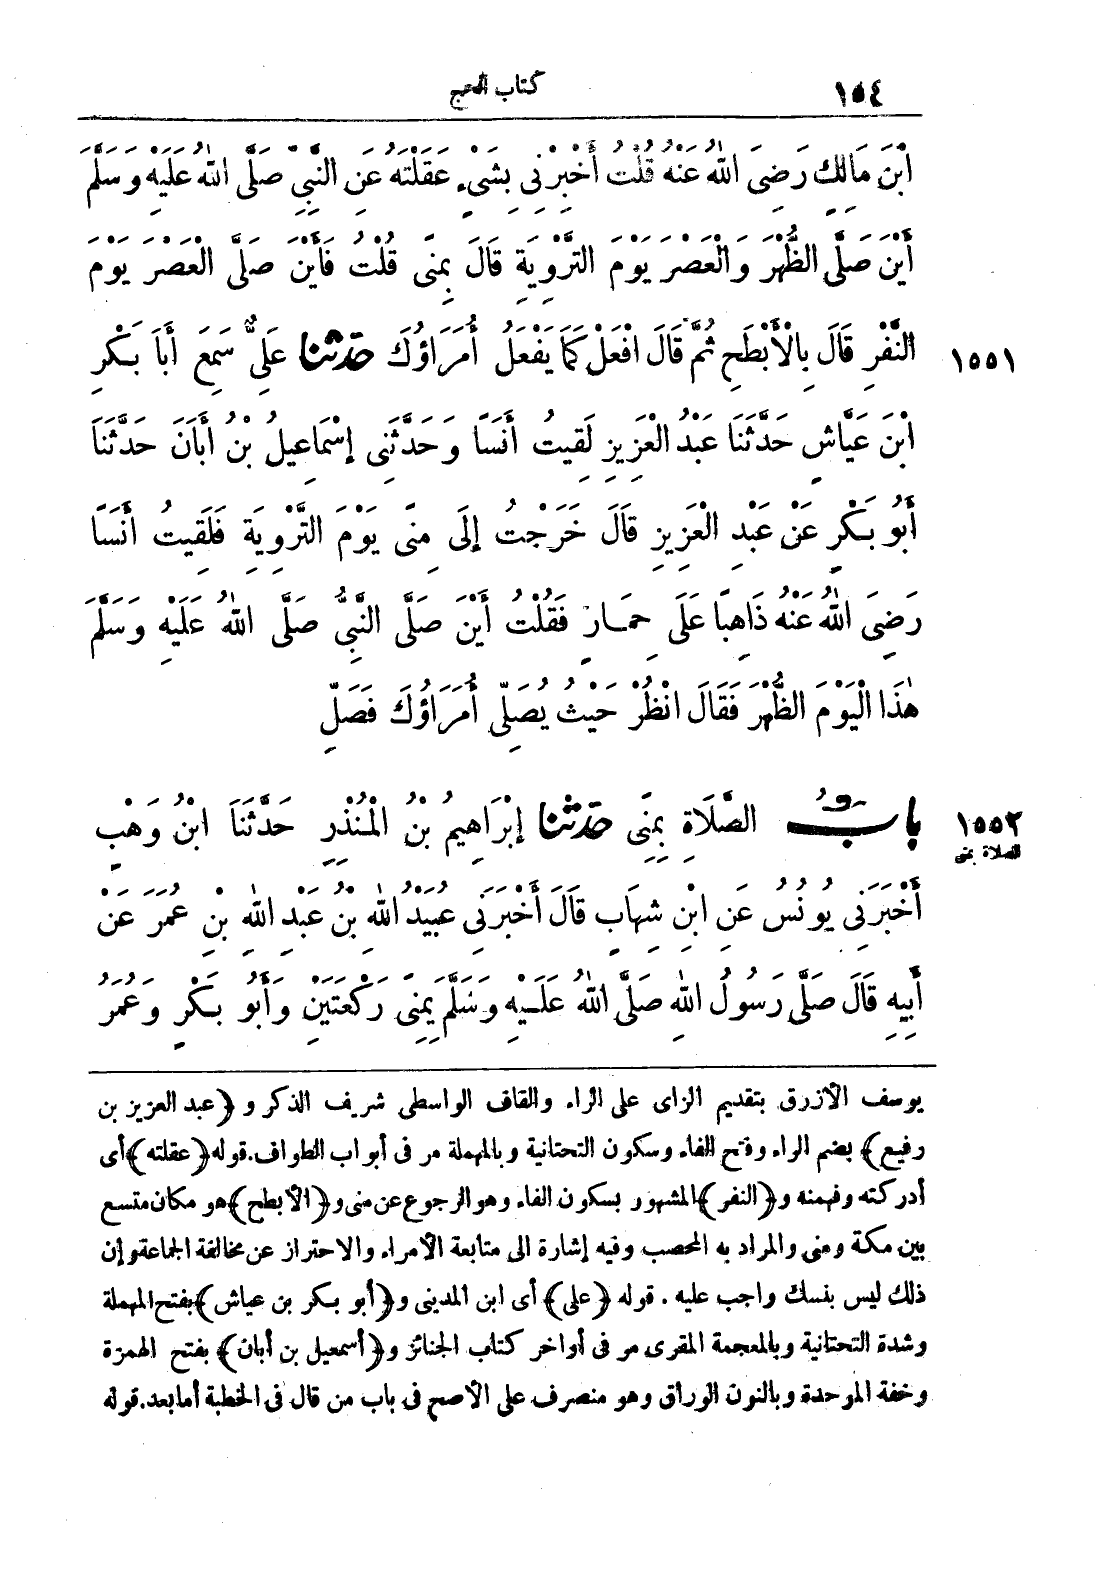 ١٥٤ كتاب الحج
ابْنَ مَالِكٍ رَضِىَ اللهُ عَنْهُ قُلْتُ أَخْبِرْنِى بِشَىْءٍ عَقَلْتَهُ عَنِ النَّبِيِّ صَلَّى اللهُ عَلَيْهِ وَسَلَّمَ
أَيْنَ صَلَّى الظُّهْرَ وَالْعَصْرَ يَوْمَ التَّرْوِيَةِ قَالَ بِمِنًى قُلْتُ فَأَيْنَ صَلَّى الْعَصْرَ يَوْمَ
النَّفْرِ قَالَ بِالْأَبْطَحِ ثُمَّ قَالَ افْعَلْ كَمَا يَفْعَلُ أُمَرَاؤُكَ حَدَّثَنَا عَلِىٌّ سَمِعَ أَبَا بَكْرِ ١٥٥١
ابْنَ عَيَّاشٍ حَدَّثَنَا عَبْدُ الْعَزِيزِ لَقِيتُ أَنَسًا وَحَدَّثَنِى إِسْمَاعِيلُ بْنُ أَبَانَ حَدَّثَنَا
أَبُو بَكْرٍ عَنْ عَبْدِ الْعَزِيزِ قَالَ خَرَجْتُ إِلَى مِنًى يَوْمَ التَّرْوِيَةِ فَلَقِيتُ أَنَسًا
رَضِىَ اللهُ عَنْهُ ذَاهِبًا عَلَى حِمَارٍ فَقُلْتُ أَيْنَ صَلَّى النَّبِىُّ صَلَّى اللهُ عَلَيْهِ وَسَلَّمَ
هٰذَا الْيَوْمَ الظُّهْرَ فَقَالَ انْظُرْ حَيْثُ يُصَلِّى أُمَرَاؤُكَ فَصَلِّ
بابُ الصَّلَاةِ بِمِنًى حَدَّثَنَا إِبْرَاهِيمُ بْنُ الْمُنْذِرِ حَدَّثَنَا ابْنُ وَهْبٍ ١٥٥٢
الصلاة بمنى
أَخْبَرَنِى يُونُسُ عَنِ ابْنِ شِهَابٍ قَالَ أَخْبَرَنِى عُبَيْدُ اللهِ بْنُ عَبْدِ اللهِ بْنِ عُمَرَ عَنْ
أَبِيهِ قَالَ صَلَّى رَسُولُ اللهِ صَلَّى اللهُ عَلَيْهِ وَسَلَّمَ بِمِنًى رَكْعَتَيْنِ وَأَبُو بَكْرٍ وَعُمَرُ
يوسف الأزرق بتقديم الزاى على الراء والقاف الواسطى شريف الذكر و (عبد العزيز بن
رفيع) بضم الراء وفتح الفاء وسكون التحتانية وبالمهملة مر فى أبواب الطواف. قوله (عقلته) أى
أدركته وفهمته و (النفر) المشهور بسكون الفاء وهو الرجوع عن منى و (الأبطح) هو مكان متسع
بين مكة ومنى والمراد به المحصب وفيه إشارة الى متابعة الأمراء والاحتراز عن مخالفة الجماعة وإن
ذلك ليس بنسك واجب عليه . قوله (على) أى ابن المدينى و (أبو بكر بن عياش) بفتح المهملة
وشدة التحتانية وبالمعجمة المقرى مر فى أواخر كتاب الجنائز و (أسمعيل بن أبان) بفتح الهمزة
وخفة الموحدة وبالنون الوراق وهو منصرف على الأصح فى باب من قال فى الخطبة أما بعد. قوله